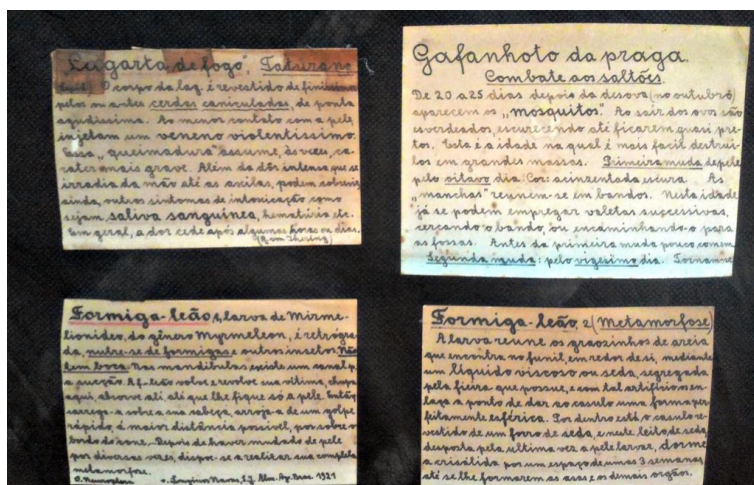 "Lagarta de fogo", Taturana
O corpo da lag. é revestido de finissimos
pelos ou antes cerdas caniculadas, de ponta
agudissima. Ao menor contato com a pele
injetam um veneno violentissimo.
Essa "queimadura" assume, às vezes, ca-
rater mais grave. Além da dôr intensa que se
irradia da mão até as axilas, podem sobrevir,
ainda, outros sintomas de intoxicação como
sejam, saliva sanguínea, hematúria etc.
Em geral, a dor cede após algumas horas ou dias.
(R. von Ihering)
Gafanhoto da praga.
Combate aos saltões.
De 20 a 25 dias depois da desova (no outubro)
aparecem os "mosquitos". Ao sair dos ovos são
esverdeados, escurecendo até ficarem quasi pre-
tos. Esta é a idade na qual é mais facil destrui-
los em grandes massas. Primeira muda de pele
pelo oitavo dia. Cor: acinzentada escura. As
"manchas" reunem-se em bandos. Nesta idade
já se podem empregar valetas successivas,
cercando o bando, ou encaminhando-o para
as fossas. Antes da primeira muda pouco comem.
Segunda muda: pelo vigesimo dia. Tornam-se
Formiga-leão 1, larva de Mirme-
lionideo do gênero Myrmeleon, é retrógra-
da, nutre-se de formigas e outros insetos. Não
tem boca. Nas mandibulas existe um canal p.
a sucção. A f.-leão volve e revolve sua vítima, chupa
aqui, absorve ali, até que lhe fique só a pele. Então
carrega-a sobre a sua cabeça, arroja-a de um golpe
rápido, á maior distância possível, por sobre o
bordo do cone. Depois de haver mudado de pele
por diversas vezes, dispoe-se a realizar sua completa
metamorfose.
Longinos Navas, S.J. Alm. Ag. Bras. 1921
Formiga-leão, 2 (Metamorfose)
A larva reune os grãozinhos de areia
que encontra no funil, em redor de si, mediante
um líquido viscoso ou seda, segregada
pela fieira que possue, e com tal artifício os en-
laça a ponto de dar ao casulo uma forma per-
feitamente esférica. Por dentro está o casulo re-
vestido de um forro de seda, e neste leito de seda,
desposta pela ultima vez a pele larvar, dorme
a crisálida por um espaço de umas 3 semanas
até se lhe formarem as asas e os demais orgãos.